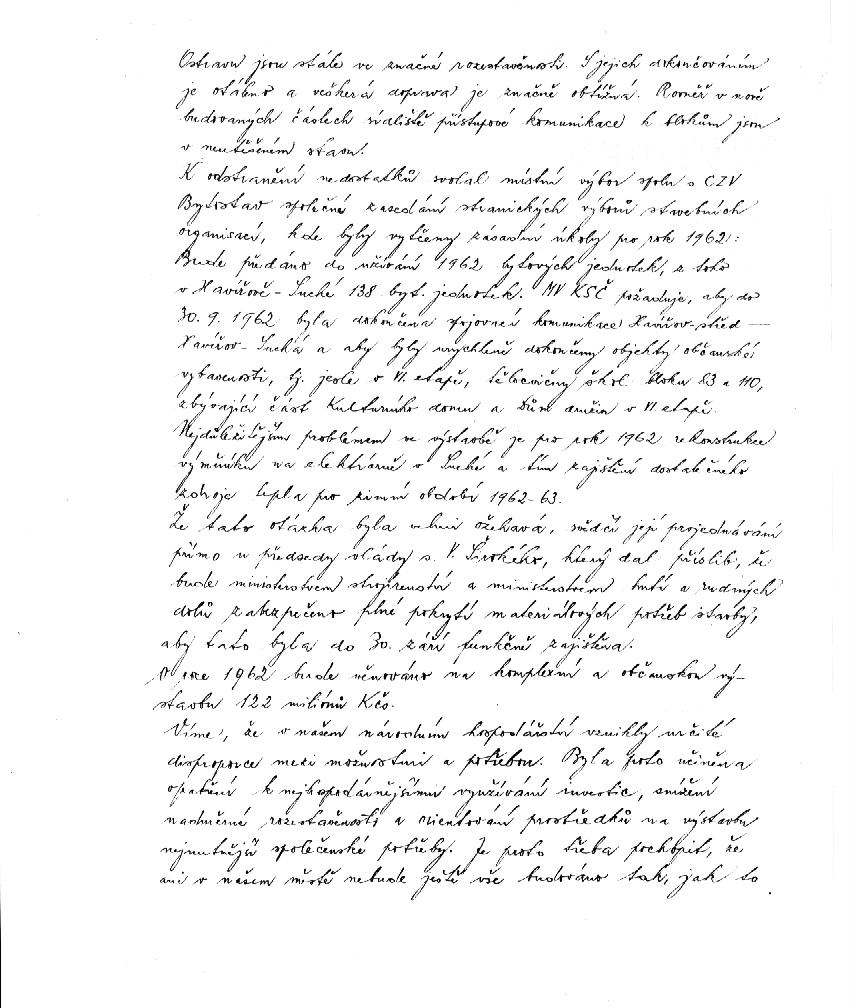 Ostravu jsou stále ve značné rozestavěnosti. S jejich dokončováním
je otáleno a veškerá doprava je značně obtížná. Rovněž v nově
budovaných částech sídliště přístupové komunikace k blokům jsou
v neutěšeném stavu.
K odstranění nedostatků svolal místní výbor spolu s CZV
Bytostav společné zasedání stranických výborů stavebních
organisací, kde byly vytčeny zásadní úkoly pro rok 1962:
Bude předáno do užívání 1962 bytových jednotek, z toho
v Havířově - Suché 138 byt. jednotek. MV KSČ požaduje, aby do
30. 9. 1962 byla dokončena spojovací komunikace Havířov-střed —
Havířov-Suchá a aby byly urychleně dokončeny objekty občanské
vybavenosti, tj. jesle v VI. etapě, tělocvičny škol bloku 83 a 110,
zbývající část Kulturního domu a Dům služin v VI etapě.
Nejdůležitějším problémem ve výstavbě je pro rok 1962 rekonstrukce
výměníku na elektrárně v Suché a tím zajištění dostatečného
zdroje tepla pro zimní období 1962-63.
Že tato otázka byla velmi ožehavá, svědčí její projednávání
přímo u předsedy vlády s. V. Širokého, který dal příslib, že
bude ministerstvem strojírenství a ministerstvem hutí a rudných
dolů zabezpečeno plné pokrytí materiálových potřeb stavby,
aby tato byla do 30. září funkčně zajištěna.
V roce 1962 bude věnováno na komplexní a občanskou vý-
stavbu 122 miliónů Kčs.
Víme, že v našem národním hospodářství vznikly určité
disproporce mezi možnostmi a potřebou. Byla proto učiněna
opatření k nejhospodárnějšímu využívání investic, snížení
nadměrné rozestavěnosti a orientování prostředků na výstavbu
nejnutnější společenské potřeby. Je proto třeba pochopit, že
ani v našem městě nebude ještě vše budováno tak, jak to